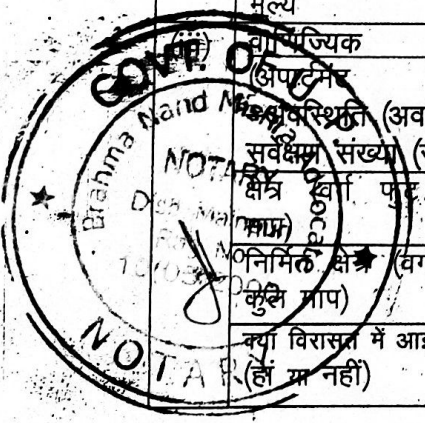 मूल्य
(ii) वाणिज्यिक
(अपार्टमेंट
अवस्थिति (अव
सर्वेक्षण संख्या (स
क्षेत्र (वर्ग फुट
माप)
निर्मित क्षेत्र (वग
कुल माप)
क्या विरासत में आई
(हां या नहीं)
GOVT. OF U.P.
Brahma Nand Mishra Advocate
NOTARY
Distt. Mainpuri
Reg. No
NOTARY